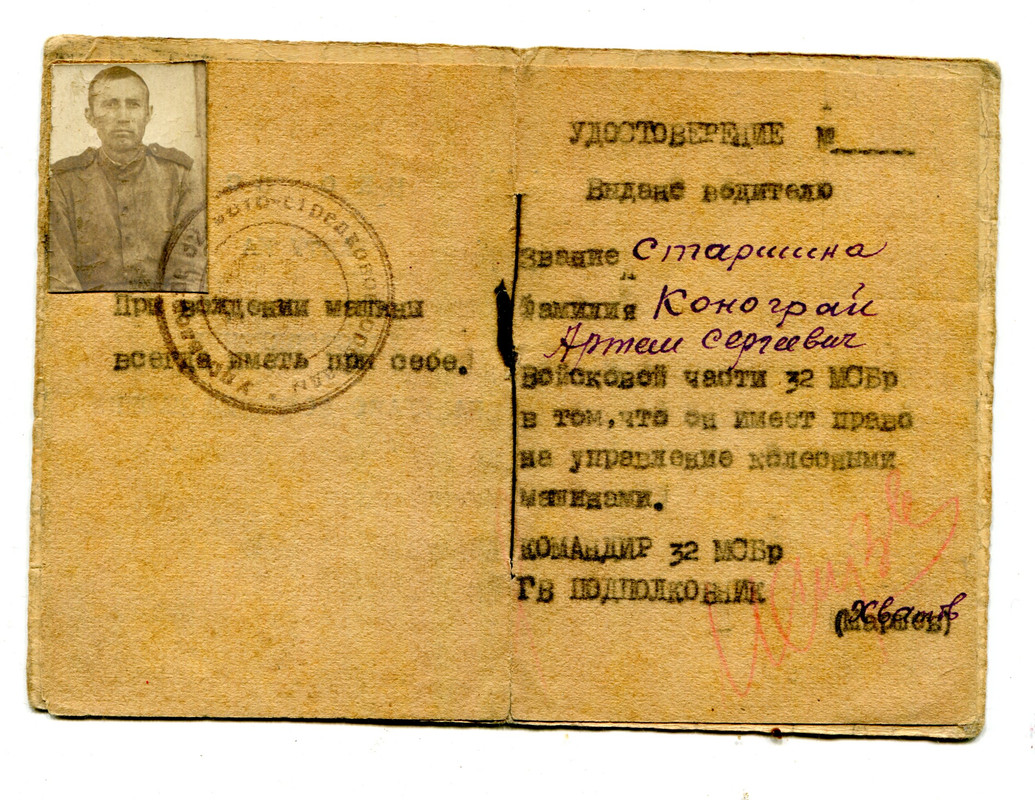 При вождении машины
всегда иметь при себе.
УДОСТОВЕРЕНИЕ №
Выдано водителю
Звание Старшина
Фамилия Конограй
Артем Сергеевич
Войсковой части 32 МСБр
в том, что он имеет право
на управление колесными
машинами.
КОМАНДИР 32 МСБр
ГВ ПОДПОЛКОВНИК
Хватов